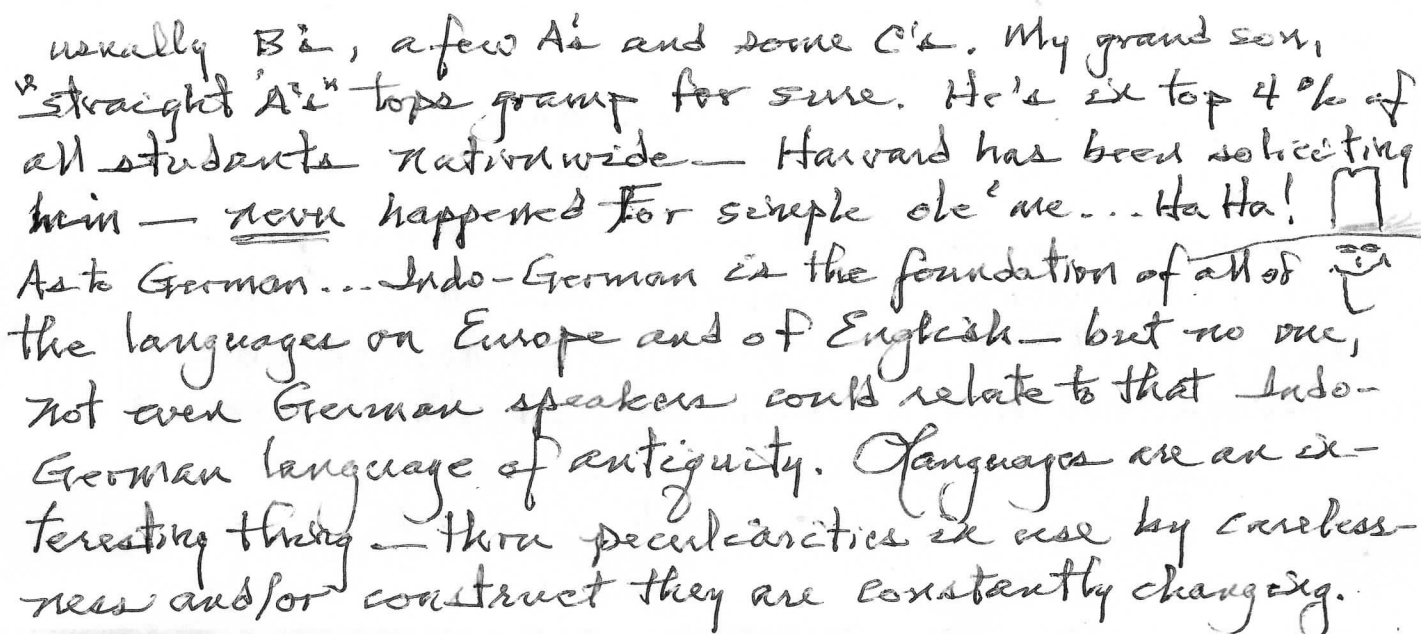 usually B's, a few A's and some C's. My grand son,
"straight 'A's" tops gramp for sure. He's in top 4% of
all students nationwide — Harvard has been soliciting
him — never happened For simple ole' me... Ha Ha!
As to German... Indo-German is the foundation of all of
the languages on Europe and of English — but no one,
not even German speakers could relate to that Indo-
German language of antiquity. Languages are an in-
teresting thing — thru peculiarities in use by careless-
ness and/or construct they are constantly changing.